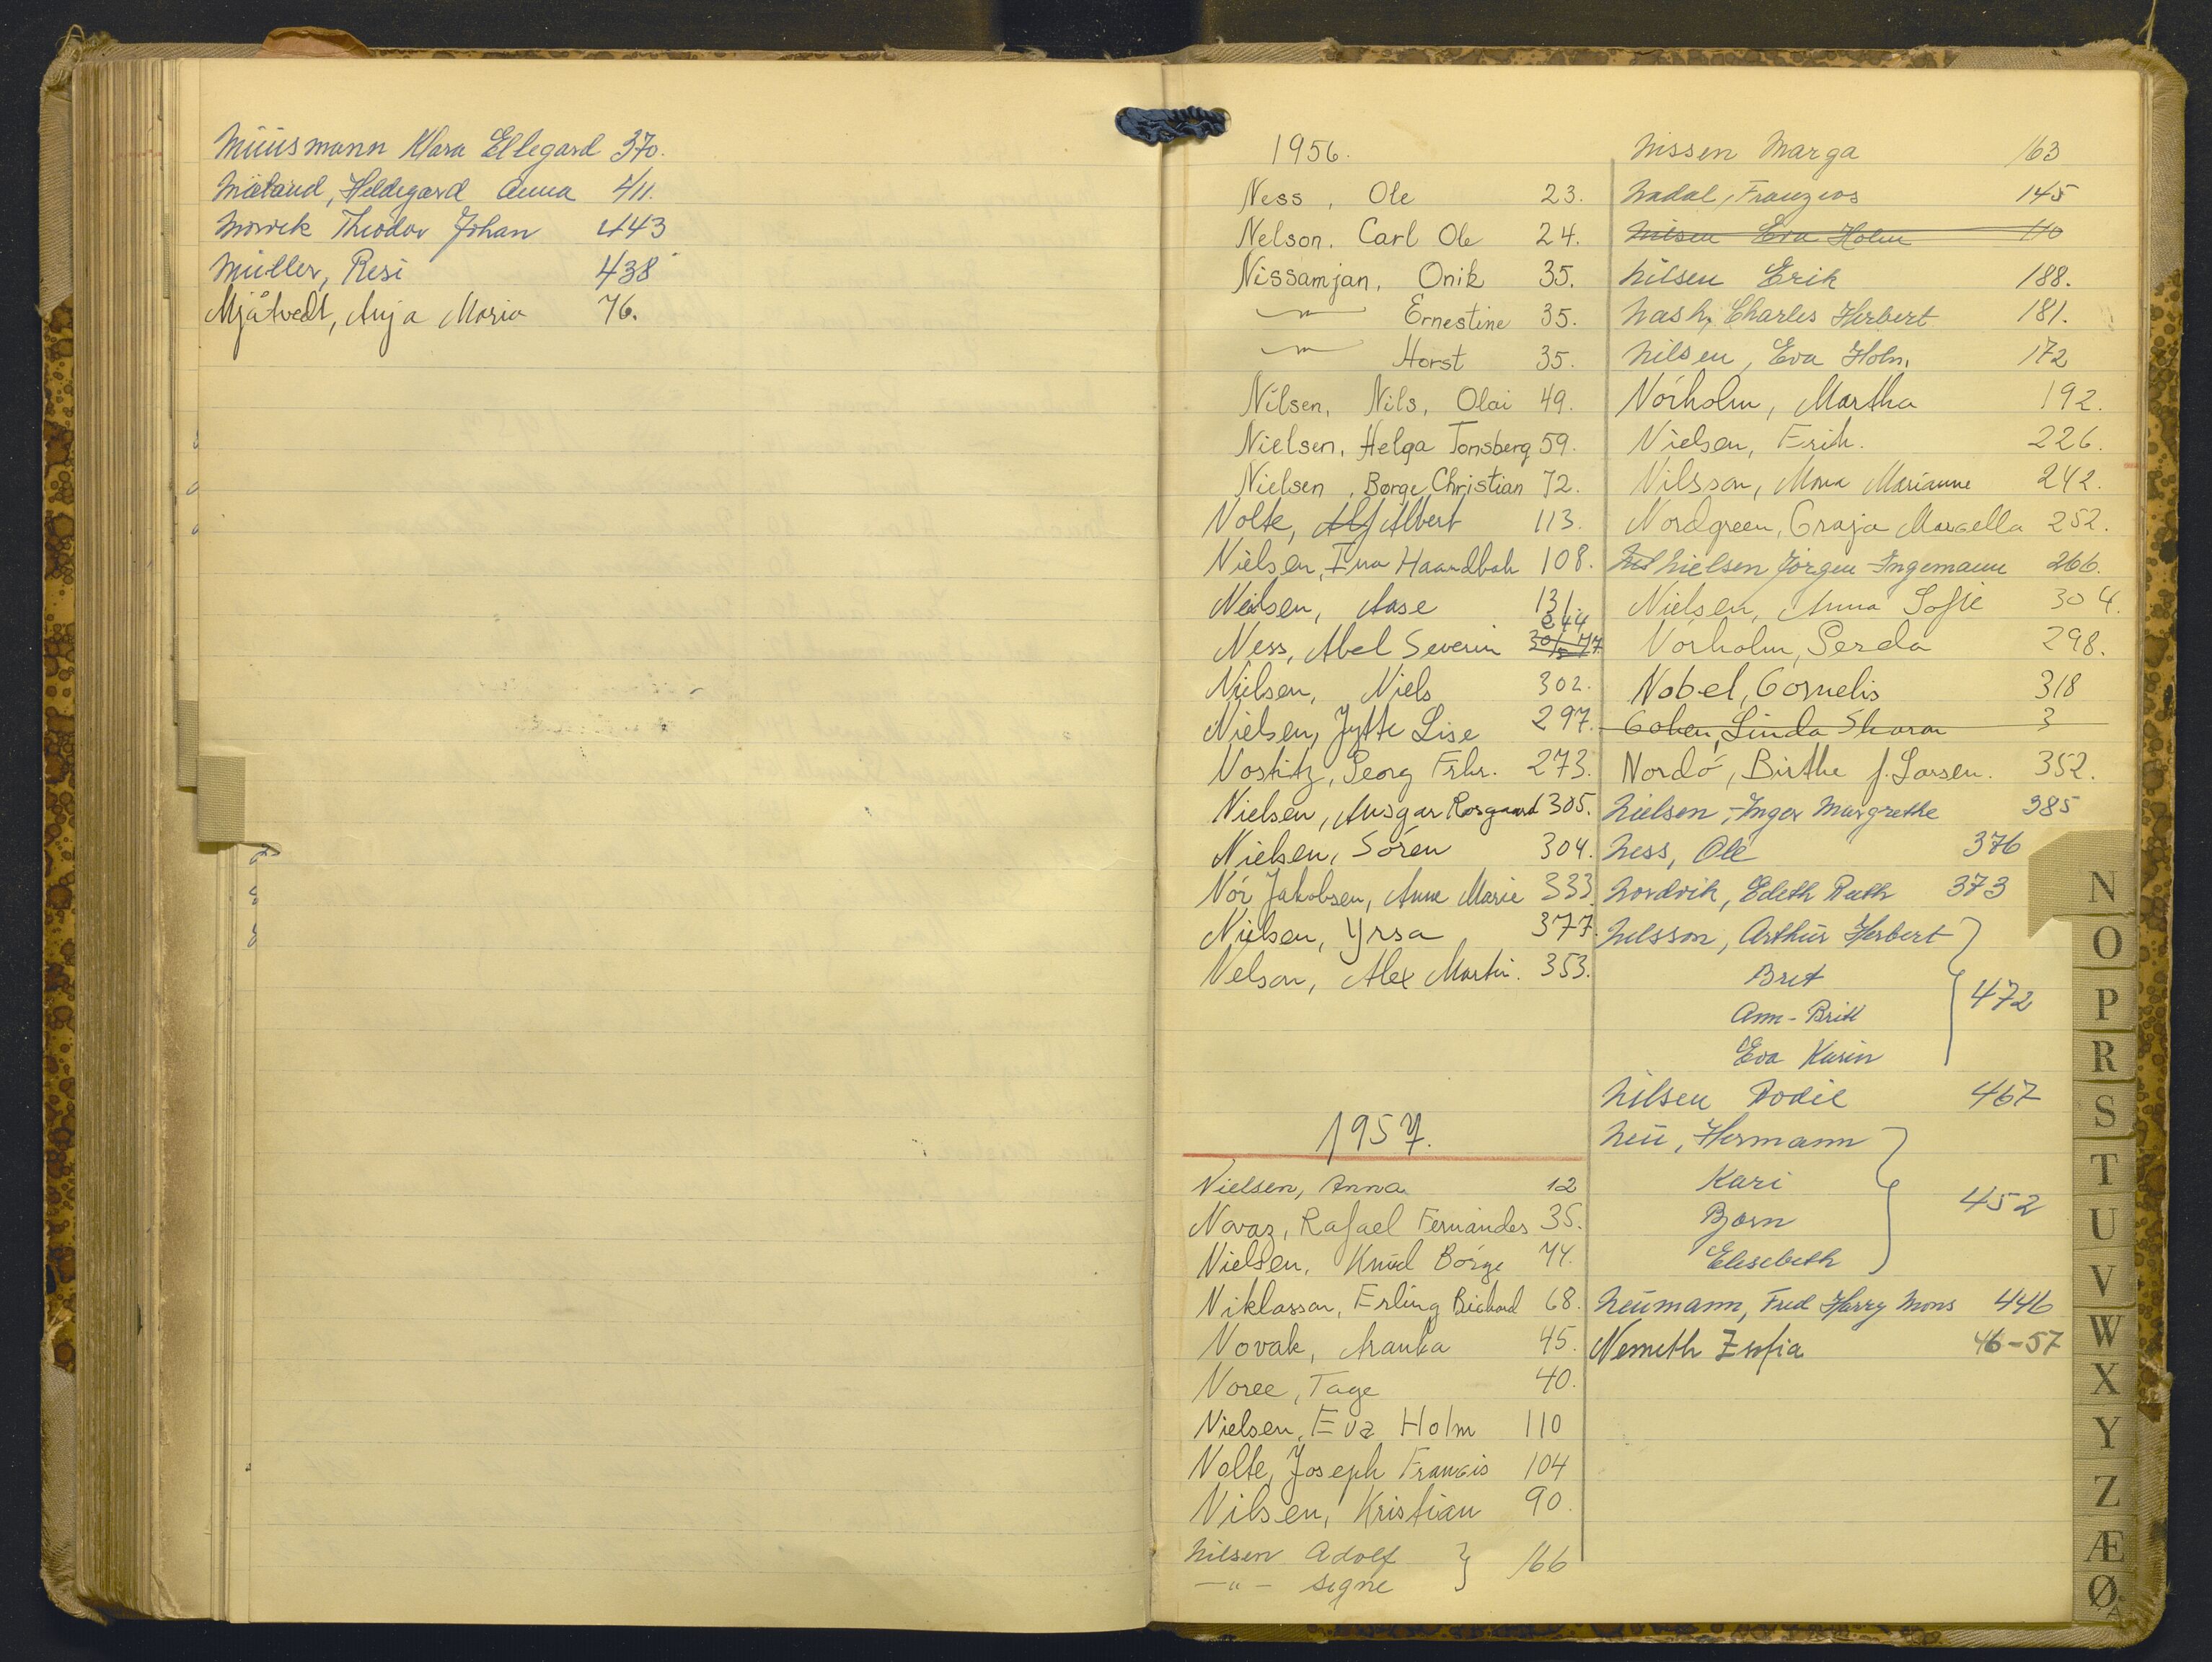 Müüsmann Klara Ellegard 370.
Mätaud, Heldegard Anna 411.
Morvik Theodor Johan 443
Müller, Resi 438
Mjåtvedt, Anja Maria 76.
1956.
Ness, Ole 23.
Nelson, Carl Ole 24.
Nissamjan, Onik 35.
—"— Ernestine 35.
—"— Horst 35.
Nilsen, Nils, Olai 49.
Nielsen, Helga Tonsberg 59.
Nielsen, Børge Christian 72.
Nolte, Alf Albert 113.
Nielsen, Eva Haandbæk 108.
Neilsen, Aase 131.
Ness, Abel Severin 244
Nielsen, Niels 302.
Nielsen, Jytte Lise 297.
Nostitz, Georg Frhr. 273.
Nielsen, Ansgar Rosgaard 305.
Nielsen, Sören 304.
Nör Jakobsen, Anne Marie 333.
Nielsen, Yrsa 377.
Nelson, Alex Martin. 353.
1957.
Nielsen, Anna 12
Navaz, Rafael Fernandes 35.
Nielsen, Knud Börge 74.
Niklasson, Erling Richard 68.
Novak, Aranka 45.
Noree, Tage 40.
Nielsen, Eva Holm 110
Nolte, Joseph Francis 104
Nilsen, Kristian 90.
Nilsen Adolf } 166
—"— Signe
Nissen Marga 163
Nadal, Franzeos 145
Nilsen Eva Holm 110
Nilsen Erik 188.
Nash, Charles Herbert 181.
Nilsen, Eva Holm, 172
Nörholm, Martha 192.
Nielsen, Erik. 226.
Nilsson, Mona Marianne 242.
Nordgreen, Graja Marcella 252.
Nielsen Jörgen Ingemann 266.
Nielsen, Anna Sofie 304.
Nörholm, Gerda 298.
Nobel, Cornelis 318
Cohen, Linda Sharon 3
Nordö, Birthe f. Larsen. 352.
Nielsen, Inger Margrethe 385
Ness, Ole 376
Nordvik, Edith Ruth 373
Nilsson, Arthur Herbert
Brit
Ann-Britt 472
Eva Karin
Nilsen Bodil 467
Neu, Hermann
Kari
Bjørn 452
Elisabeth
Neumann, Fred Harry Mons 446
Nemeth Zsofia 46-57
N
O
P
R
S
T
U
V
W
X
Y
Z
Æ
Ø
Å